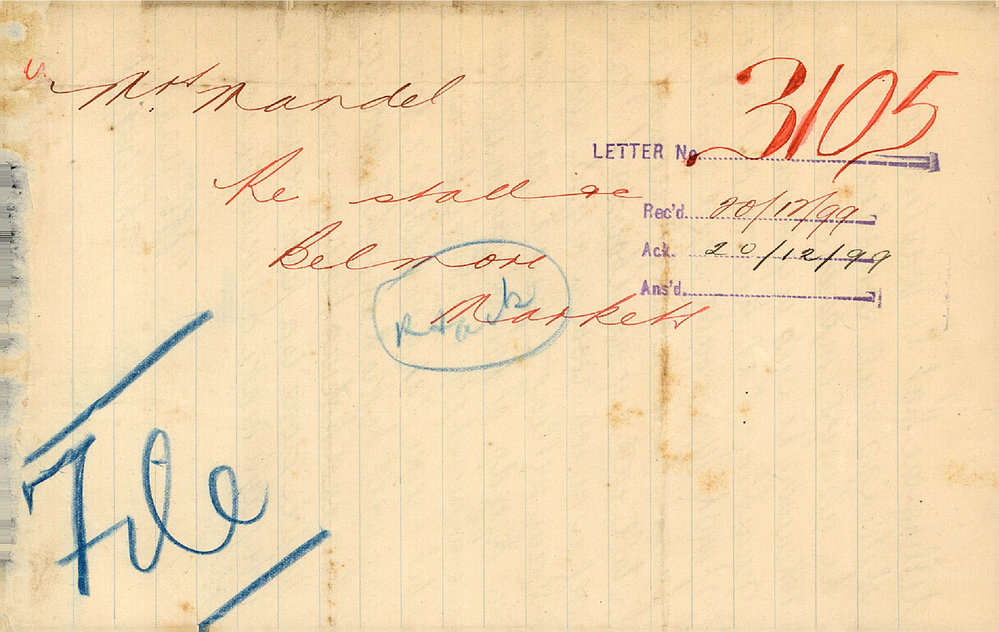 Mrs Mandel
LETTER No. 3105
Re stall &c
Rec'd. 20/12/99
Belmore
Ack. 20/12/99
Markets
Ans'd.
File